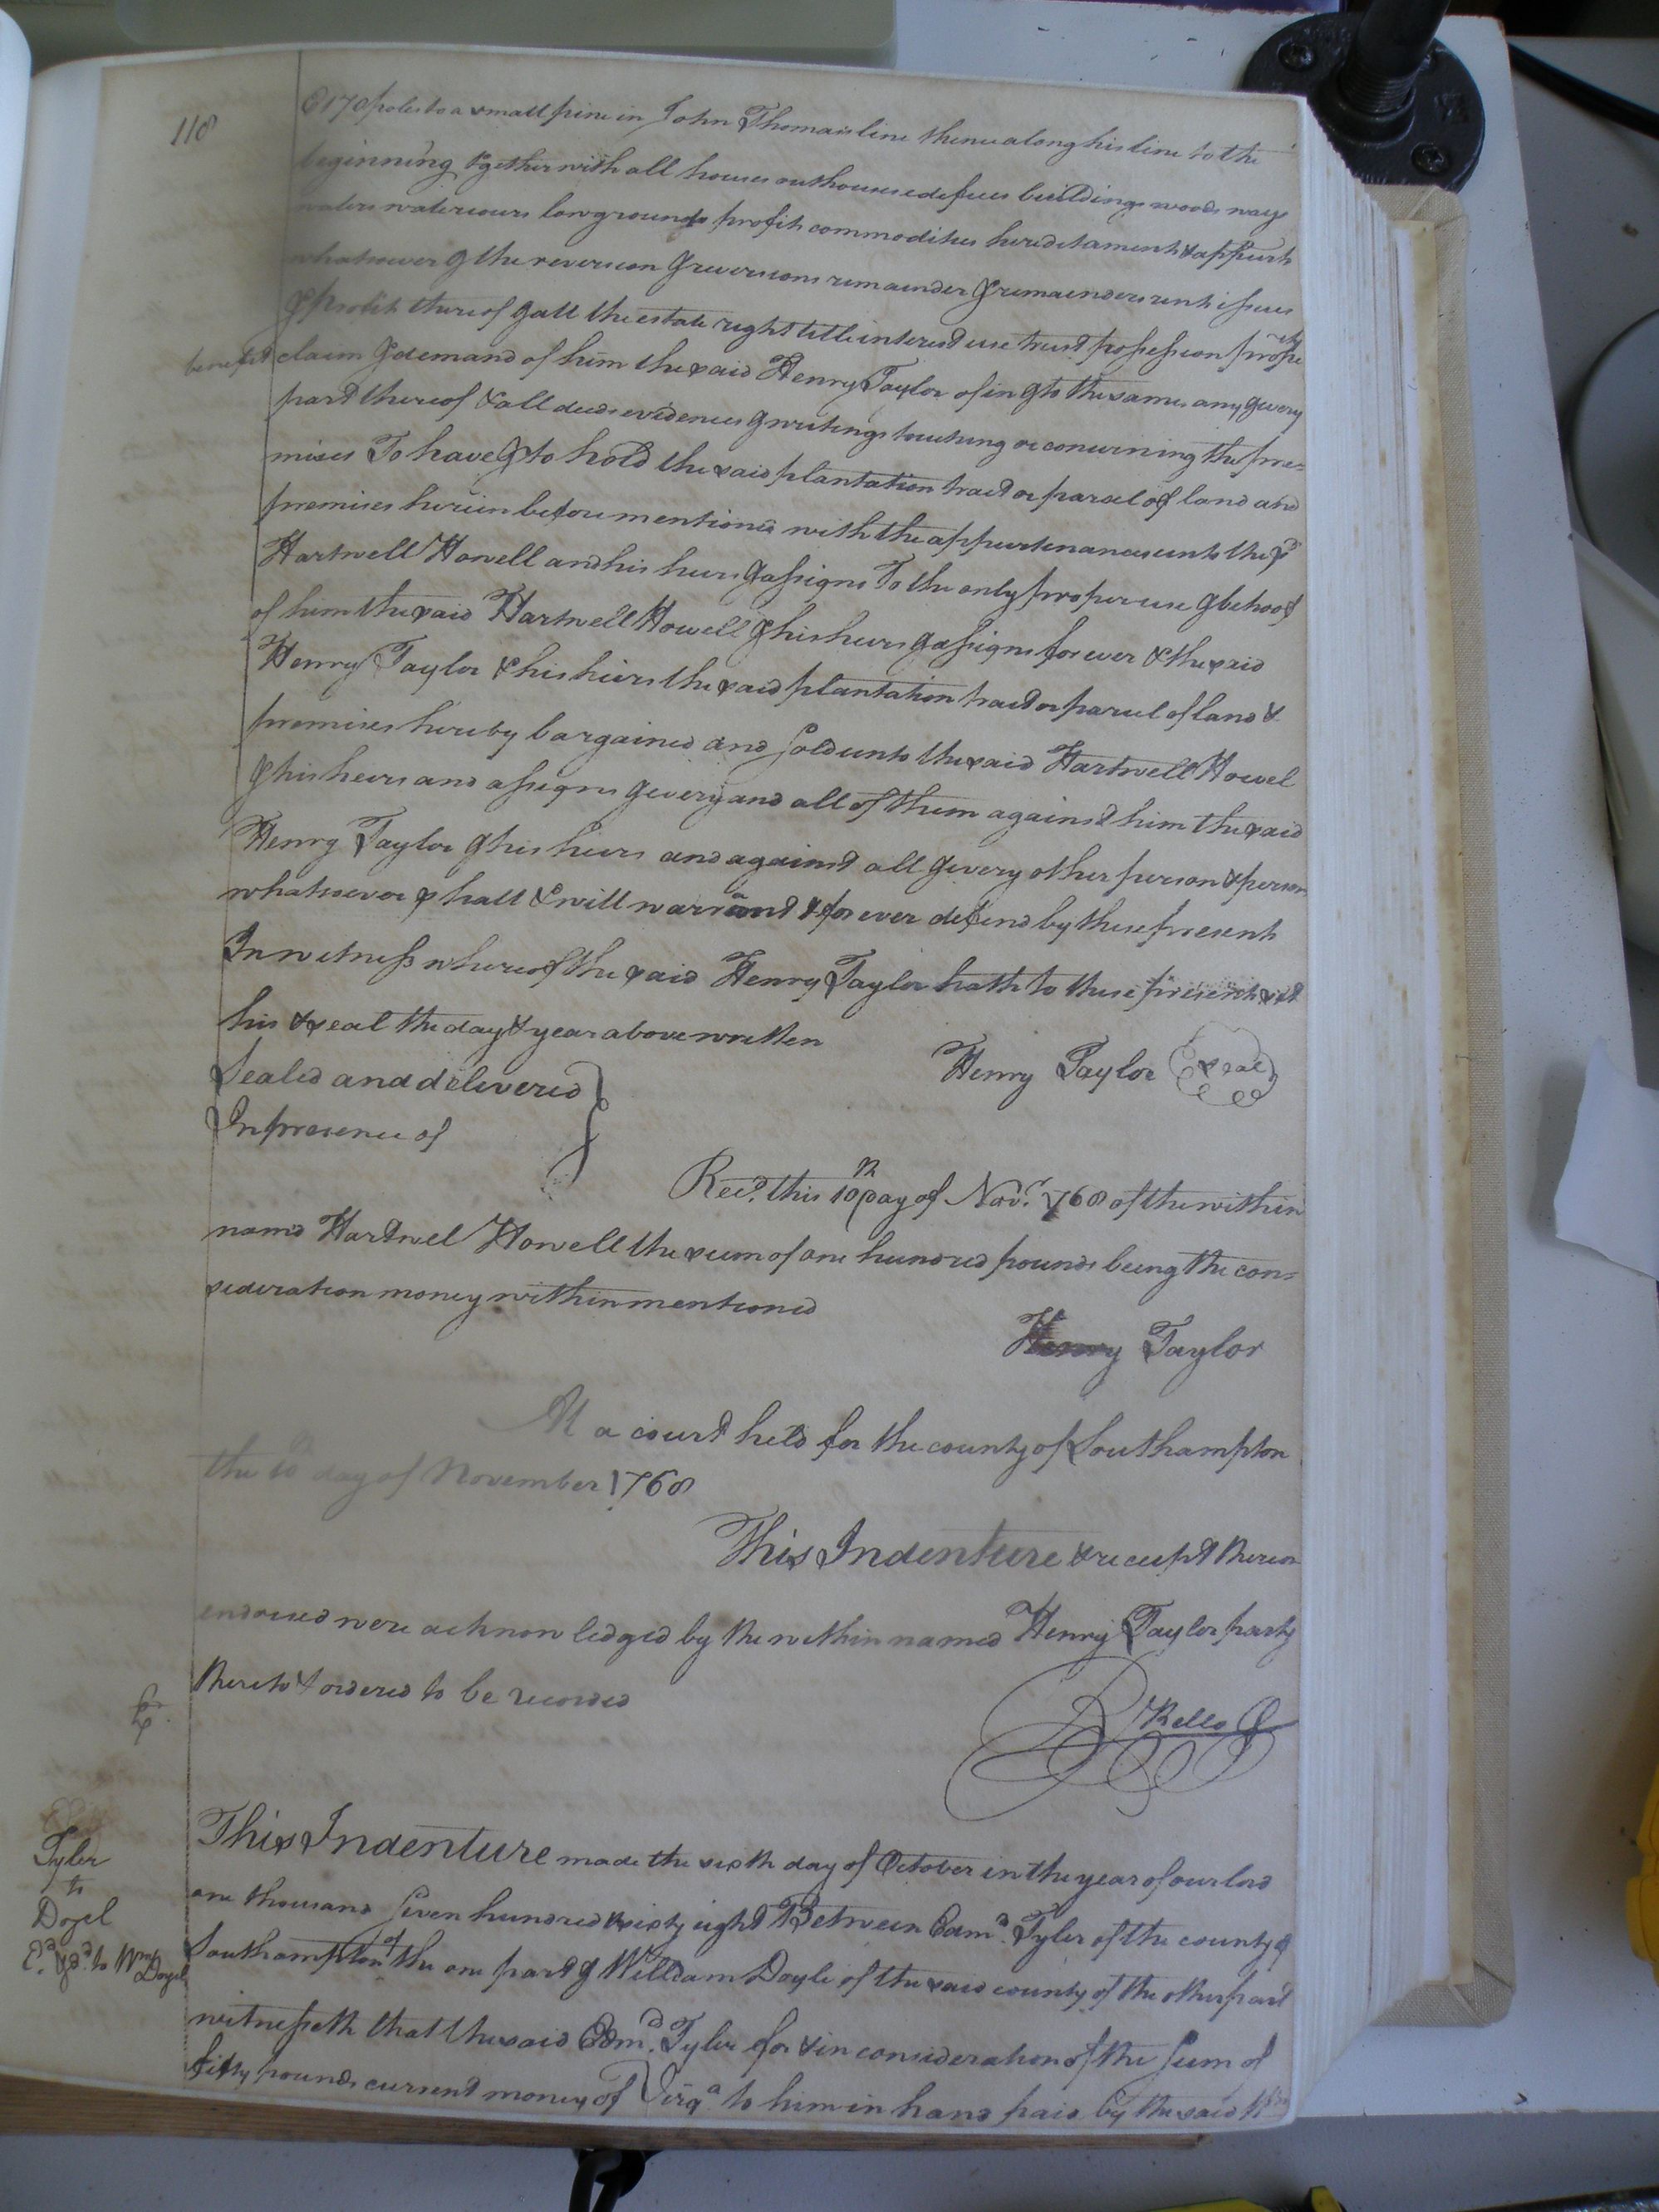 118
E 170 poles to a small pine in John Thomas's line thence along his line to the
beginning together with all houses outhouses edefices buildings woods ways
waters watercours lowgrounds profits commodities hereditaments & appurts
whatsoever & the reversion & reversions remainder & remainders rents issues
& profits thereof & all the estate right title interest use trust possession prope rty
benefit claim & demand of him the said Henry Taylor of in & to the same any & every
part thereof & all deeds evidences & writings touching or concerning the pre=
mises To have & to hold the said plantation tract or parcel of land and
premises herein before mentioned with the appurtenances unto the sd
Hartwell Howell and his heirs & assigns To the only proper use & behoof
of him the said Hartwell Howell & his heirs & assigns for ever & the said
Henry Taylor & his hiers the said plantation tract or parcel of land &
premises hereby bargained and sold unto the said Hartwell Howel
& his heirs and assigns & every and all of them against him the said
Henry Taylor & his heirs and against all & every other person & person
whatsoever shall & will warrant & for ever defend by these presents
In witness whereof the said Henry Taylor hath to these presents set
his & seal the day & year above written
Henry Taylor (seal)
Sealed and delivered
In presence of
Recd. this 10th day of Novr. 1768 of the within
named Hartwel Howell the sum of one hundred pounds being the con=
sideration money within mentioned
Henry Taylor
At a court held for the county of Southampton
the 10 day of November 1768
This Indenture & receipt thereon
endorsed were acknowledged by the within named Henry Taylor party
thereto & ordered to be recorded
R Kello
Tyler
to
Doyel
Ed. &d. to Wm Doyel
This Indenture made the sixth day of October in the year of our lord
one thousand seven hundred & sixty eight Between Edmd. Tyler of the county of
Southampton of the one part & William Doyle of the said county of the other part
witnesseth that the said Edmd. Tyler for & in consideration of the sum of
fifty pounds current money of Virga to him in hand paid by the said Wm